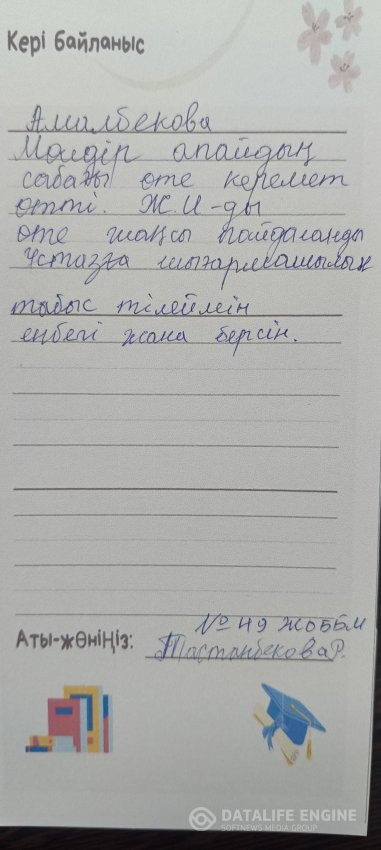 Кері байланыс
Амалбекова
Молдір апайдың
сабағы өте керемет
өтті. Ж.И-ды
өте жақсы пайдаланды
Ұстазға шығармашылық
табыс тілеймін
еңбегі жана берсін.
№ 49 ЖОББМ
Аты-жөніңіз: Тастанбекова Р.
DATALIFE ENGINE
SOFTNEWS MEDIA GROUP